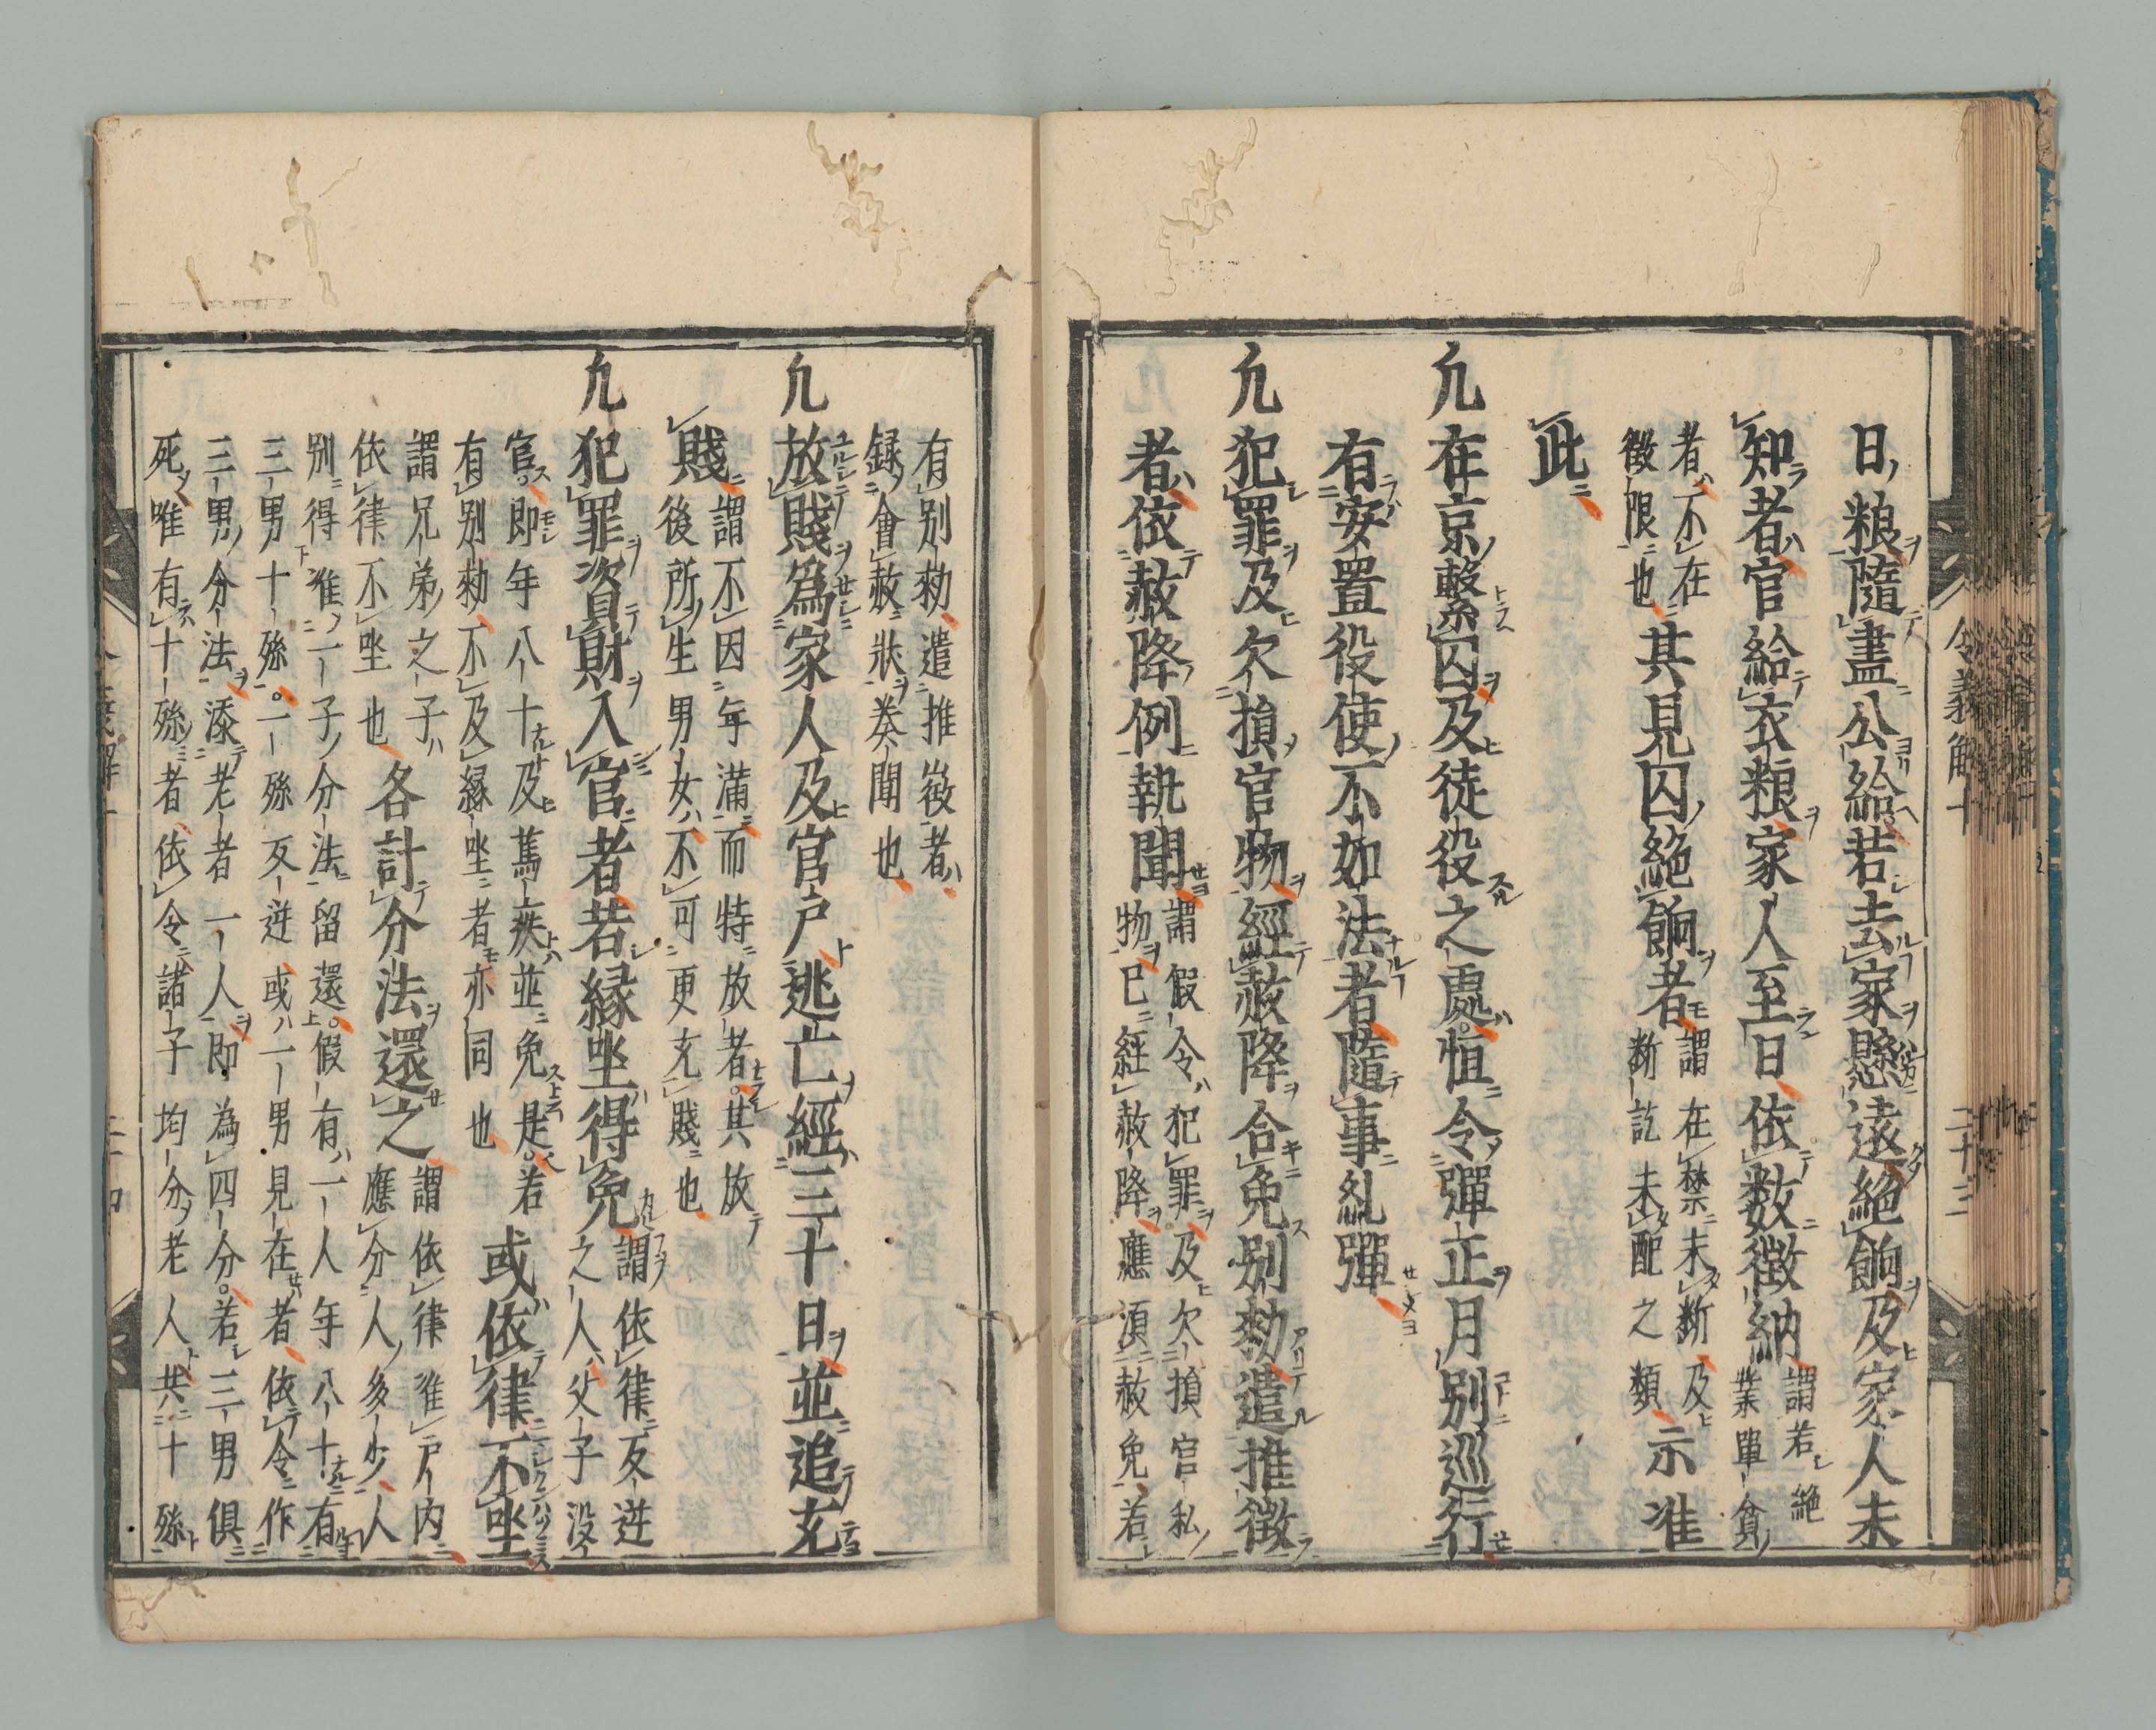 日粮隨盡公給若去家懸遠絶餉及家人未
知者官給衣粮家人至日依数徴納謂若絶
業單貧
者不在
徴限也其見囚絶餉者謂在禁未断及
断訖未配之類示准
此
凢在京繫囚及徒役之處恒令彈正月別巡行
有安置役使不如法者隨事糺彈
凢犯罪及欠損官物經赦降合免別勅遣推徴
者依赦降例執聞謂假令犯罪及欠損官私
物已經赦降應須赦免若
令義解十
二十三
有別勅遣推徴者
録會赦狀奏聞也
凢放賤爲家人及官戸逃亡經三十日並追充
賤謂不因年満而特放者其放
後所生男女不可更充賤也
凢犯罪資財入官者若縁坐得免謂依律反逆
之人父子没
官即年八十及篤疾並免是若
有別勅不及縁坐者亦同也或依律不坐
謂兄弟之子
依律不坐也各計分法還之謂依律准戸内
應分人多少人
別得准一子分法留還假有一人年八十有
三男十孫一孫反逆或一男見在者依令作
三男分法添老者一人即為四分若三男俱
死唯有十孫者依令諸子均分老人共十孫